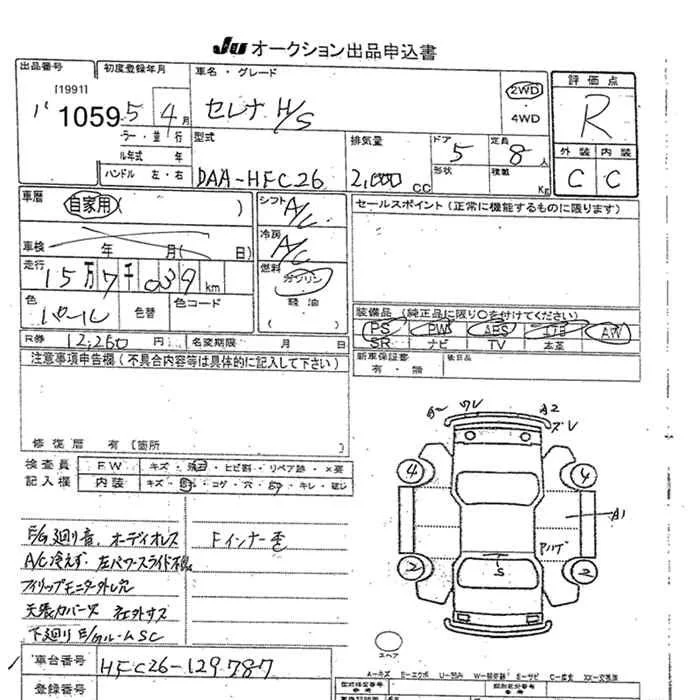 JU オークション出品申込書
出品番号
[1991]
バ 1059
初度登録年月
5 4月
ラー・並 行
ル年式 年
ハンドル 左・右
車名・グレード
セレナ H/S
2WD
・
4WD
評価点
R
外装 内装
C C
型式
DAA-HFC26
排気量
2,000 CC
ドア
5
定員
8人
形状
積載
Kg
車歴
自家用( )
車検 年 月( 日)
走行
15万7千039km
色
パール
色替
色コード
シフト
A/C
冷房
A/C
燃料
ガソリン
軽油
( )
セールスポイント(正常に機能するものに限ります)
装備品(純正品に限り○を付けてください)
PS PW ABS エアB AW
SR ナビ TV 本革
新車保証書
有・無
後日品
R券 12,260円
名変期限 月 日
注意事項申告欄(不具合内容等は具体的に記入して下さい)
修復歴 有(箇所 )
検査員
記入欄
FW キズ・飛石・ヒビ割・リペア跡・×要
内装 キズ・・コゲ・穴・・キレ・破じ
E/G廻り音、オーディオレス
Fインナー歪
A/C冷えず、左パワースライド不良
フィリップモニター外し穴
天張カバーヌ 社外サス
下廻りE/Gルームsc
車台番号 HFC26-129787
登録番号
A- ワレ A2
ズレ
4 4
A1
2 2
S
スペア
A=キズ E=エクボ U=凹み W=補修跡 S=サビ C=腐食 XX=交換済